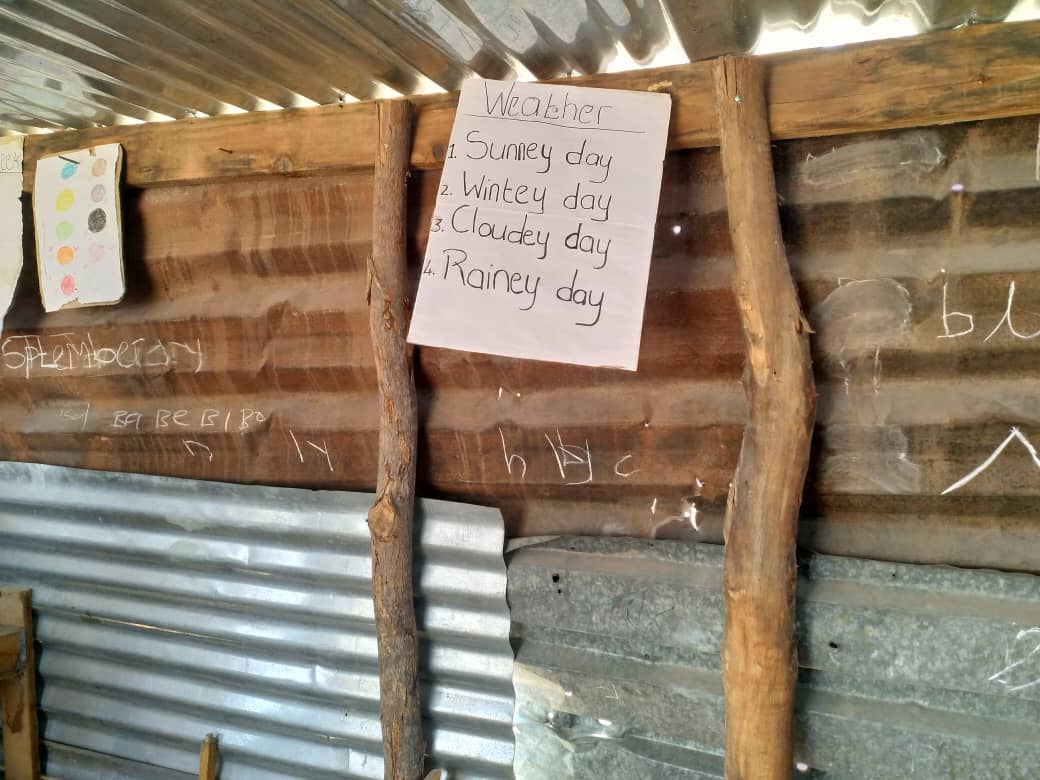 Weather
1. Sunney day
2. Wintey day
3. Cloudey day
4. Rainey day
BA BE BI BO
n ly h c